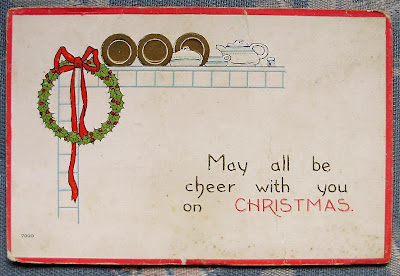 May all be
cheer with you
on CHRISTMAS.